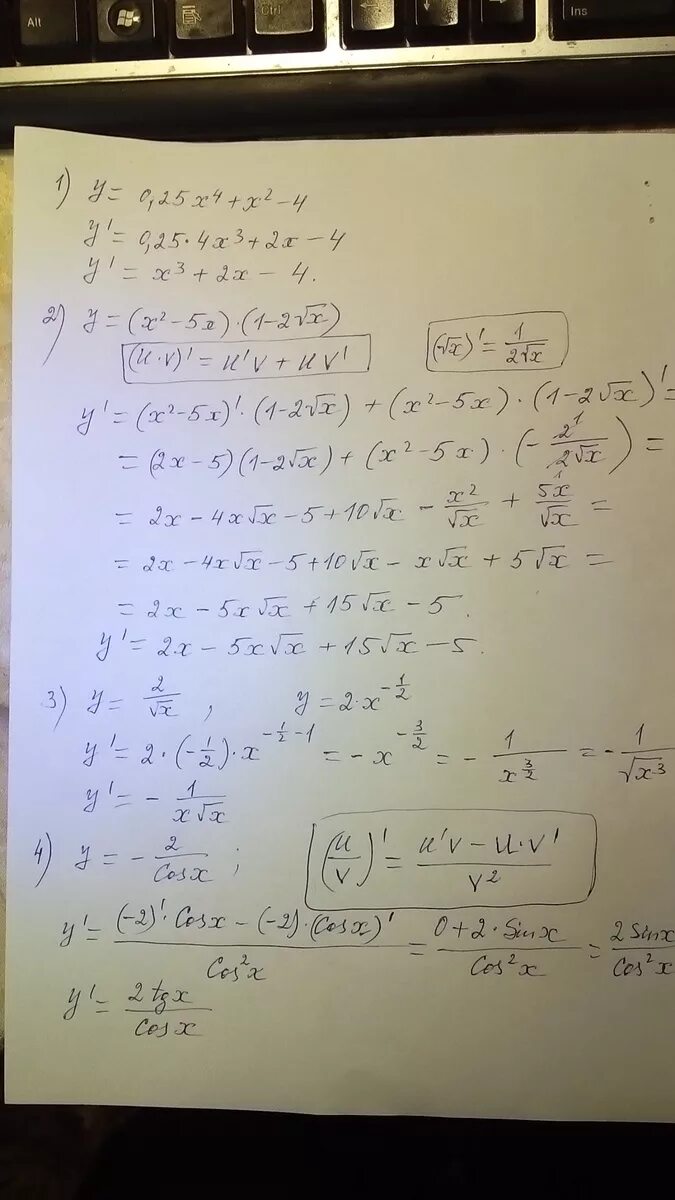 Alt
Ctrl
Ins
1) y = 0,25x⁴ + x² – 4
y' = 0,25·4x³ + 2x – 4
y' = x³ + 2x – 4.
2) y = (x² – 5x)·(1–2√x)
(u·v)' = u'v + uv'
(√x)' = 1/(2√x)
y' = (x²–5x)'·(1–2√x) + (x²–5x)·(1–2√x)' =
= (2x–5)(1–2√x) + (x²–5x)·(–2¹/(2₁√x)) =
= 2x – 4x√x – 5 + 10√x – x²/√x + 5x/√x =
= 2x – 4x√x – 5 + 10√x – x√x + 5√x =
= 2x – 5x√x + 15√x – 5.
y' = 2x – 5x√x + 15√x – 5.
3) y = 2/√x , y = 2·x^(–1/2)
y' = 2·(–1/2)·x^(–1/2–1) = – x^(–3/2) = – 1/x^(3/2) = – 1/√x³
y' = – 1/(x√x)
4) y = – 2/Cosx ; (u/v)' = (u'v – u·v')/v²
y' = ((–2)'·Cosx – (–2)·(Cosx)')/Cos²x = (0+2·Sinx)/Cos²x = 2Sinx/Cos²x
y' = 2tgx/Cosx